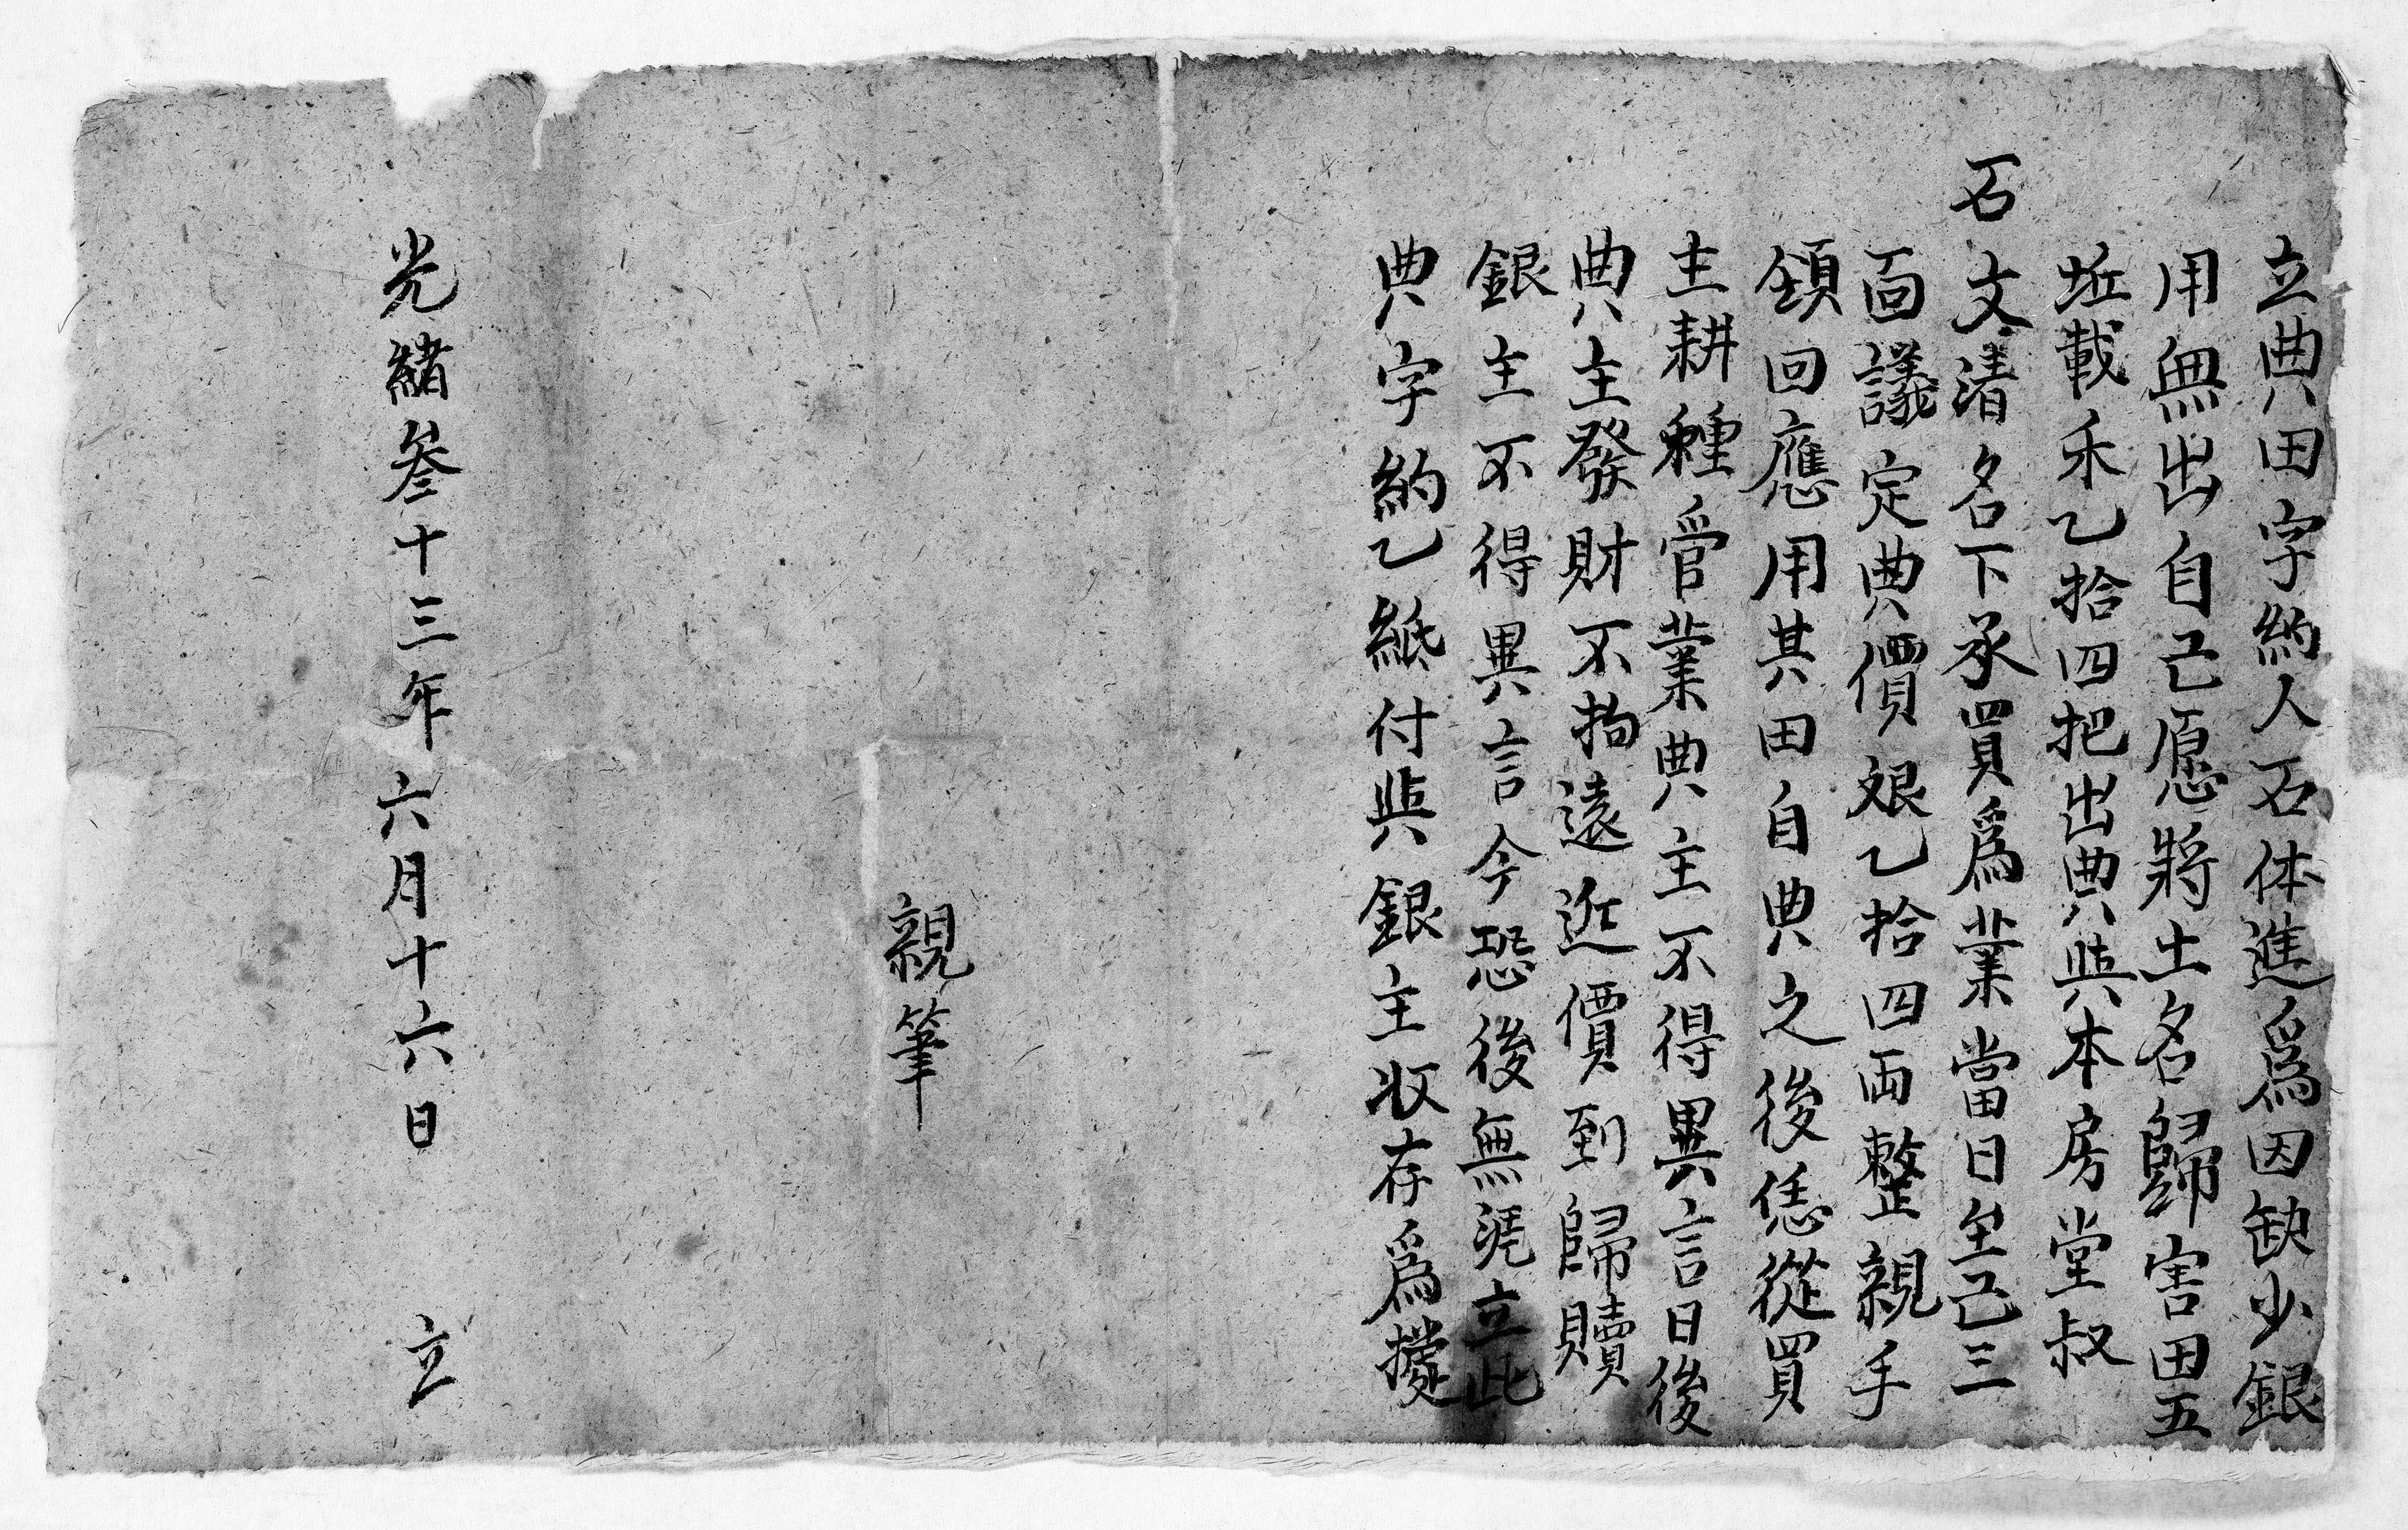 立典田字約人石体進爲因缺少銀
用無出自己愿將土名歸害田五
坵載禾乙拾四把出典與本房堂叔
石文清名下承買爲業當日坣己三
靣議定典價艰乙拾四両整親手
領回應用其田自典之後恁從買
主耕種管業典主不得異言日後
典主發財不拘遠近價到歸贖
銀主不得異言今恐後無凴立此
典字約乙紙付與銀主收存爲據
親筆
光緒叁十三年六月十六日 立